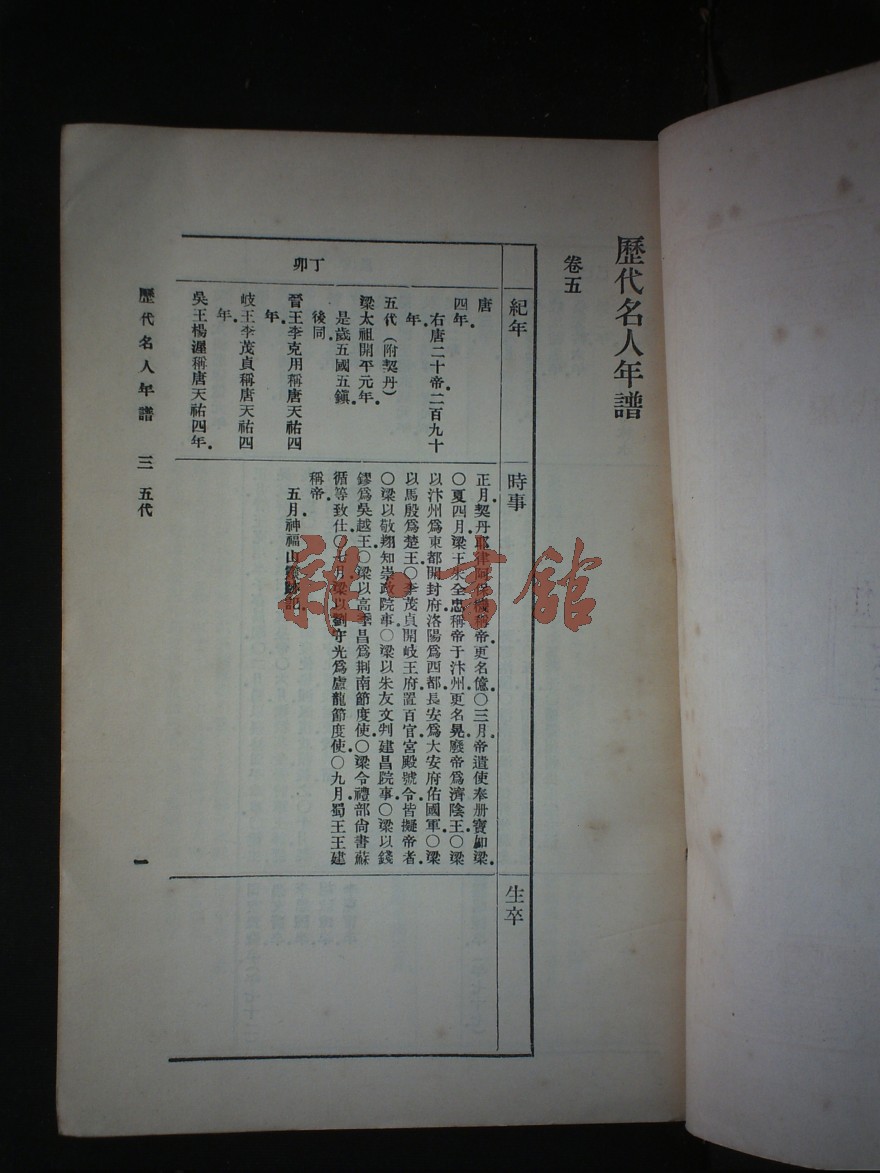 歷代名人年譜
卷五
紀年
時事
生卒
丁卯
唐
四年。
右唐二十帝二百九十
年。
五代（附契丹）
梁太祖開平元年。
是歲五國五鎭。
後同。
晉王李克用稱唐天祐四
年。
岐王李茂貞稱唐天祐四
年。
吳王楊渥稱唐天祐四年。
正月。契丹耶律阿保機稱帝。更名億。〇三月。帝遣使奉册寶如梁。
〇夏四月。梁王朱全忠稱帝于汴州。更名晃。廢帝爲濟陰王。〇梁
以汴州爲東都開封府。洛陽爲西都。長安爲大安府佑國軍。〇梁
以馬殷爲楚王。〇李茂貞開岐王府。置百官。宮殿號令皆擬帝者。
〇梁以敬翔知崇政院事。〇梁以朱友文判建昌院事。〇梁以錢
鏐爲吳越王。〇梁以高季昌爲荆南節度使。〇梁令禮部尙書蘇
循等致仕。〇七月。梁以劉守光爲盧龍節度使。〇九月。蜀王王建
稱帝。
五月神福山靈跡記。
歷代名人年譜 三 五代
一
書舘